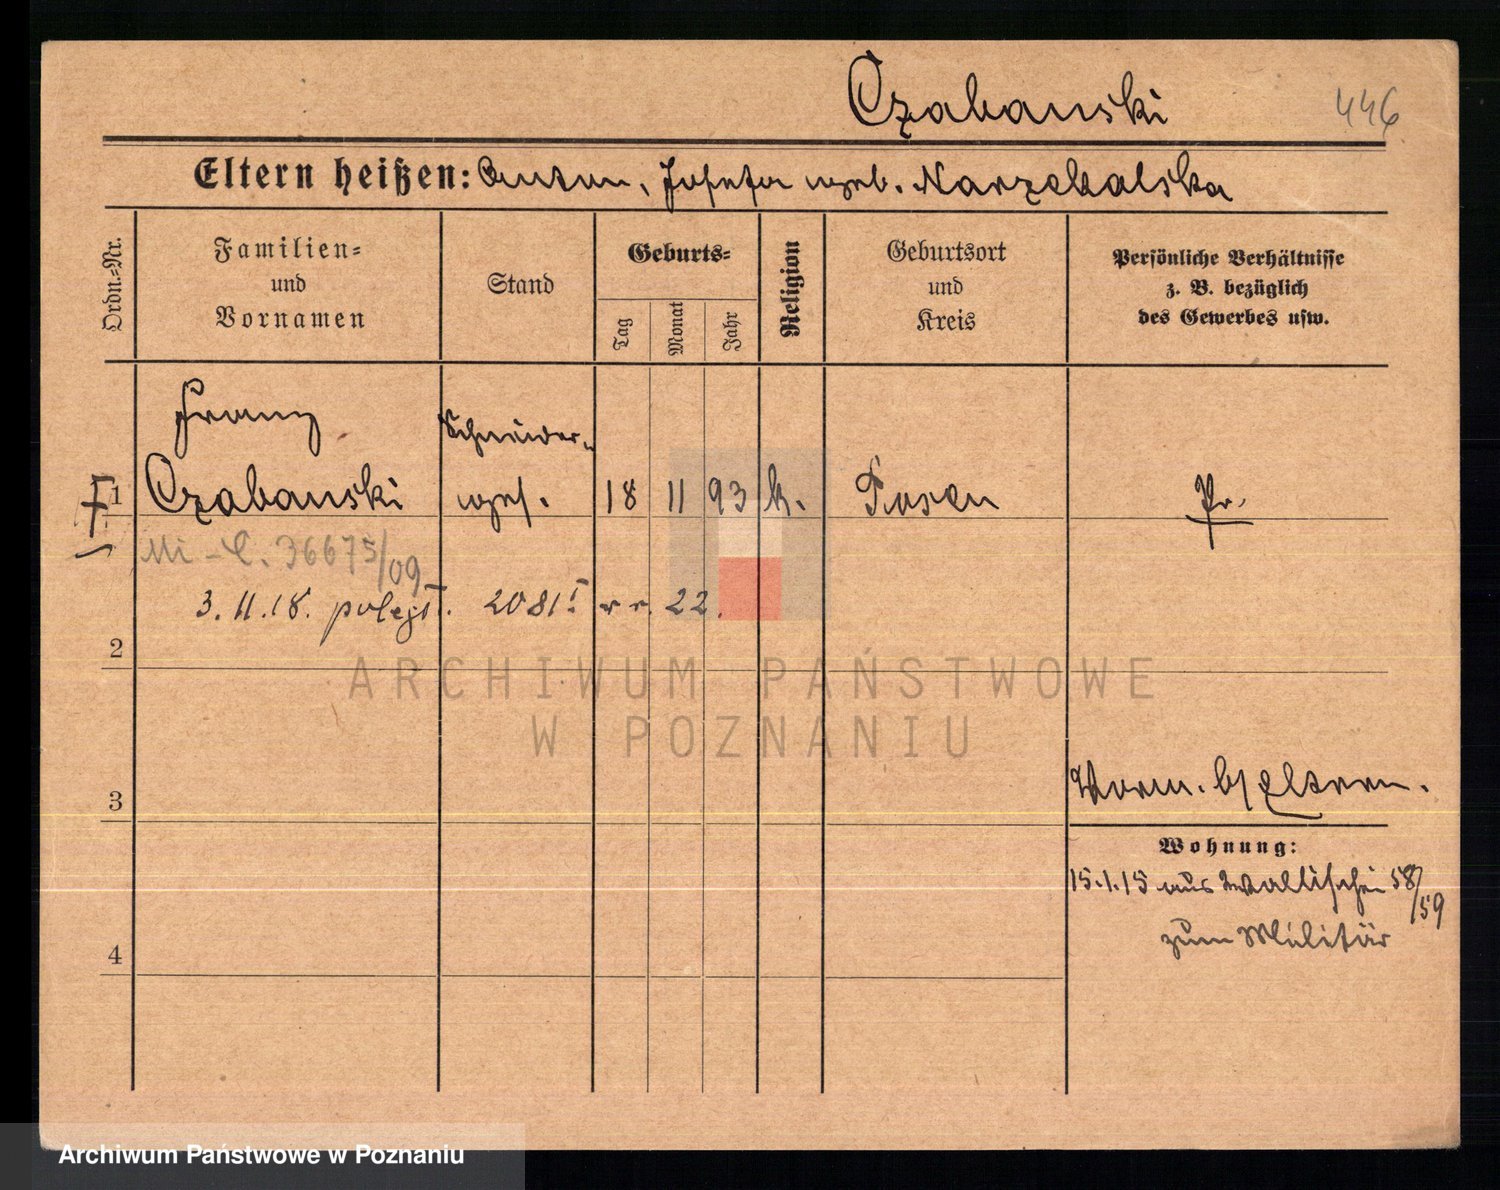 Czabanski 446
Eltern heißen: Anton, Josefa geb. Marzchalska
Ordn.=Nr.
Familien=
und
Vornamen
Stand
Geburts=
Tag
Monat
Jahr
Religion
Geburtsort
und
Kreis
Persönliche Verhältnisse
z. B. bezüglich
des Gewerbes usw.
Franz Schneider-
1 Czabanski ges. 18 11 93 k. Posen Pr.
Mi - C. 36675/09
3. 11. 18. 2081 I 22.
2
3
4
Vorm. b/ Eltern.
Wohnung:
15.1.15 aus Wallischei 58/59
zum Militär
ARCHIWUM PAŃSTWOWE
W POZNANIU
Archiwum Państwowe w Poznaniu